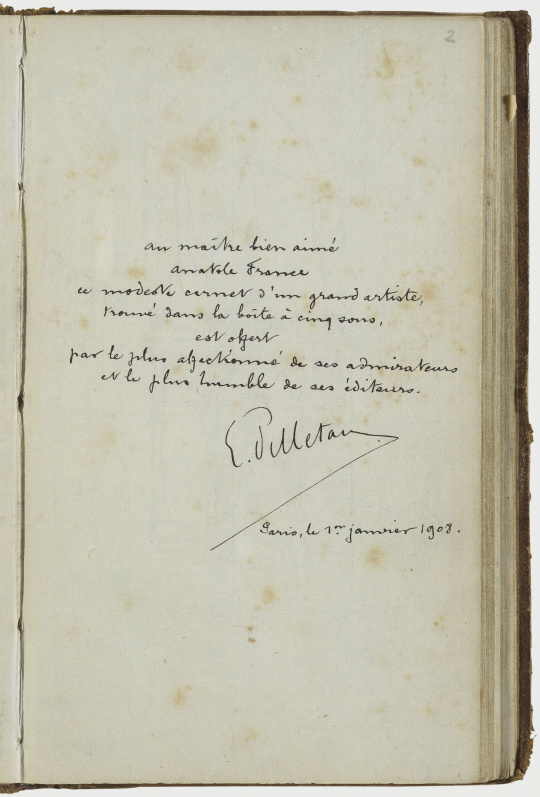 2
au maître bien aimé
anatole France
ce modeste carnet d'un grand artiste,
trouvé dans la boîte à cinq sous,
est offert
par le plus affectionné de ses admirateurs
et le plus humble de ses éditeurs.
E. Pelletan
Paris, le 1er janvier 1908.